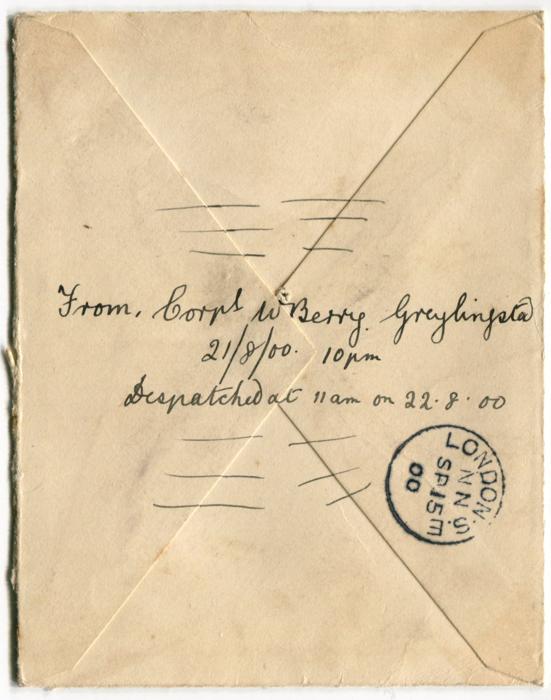 From, Corpl W Berry. Greylingsta
21/8/00. 10pm
Despatched at 11am on 22.8.00
LONDON. N.N.S.
SP 15 E
00